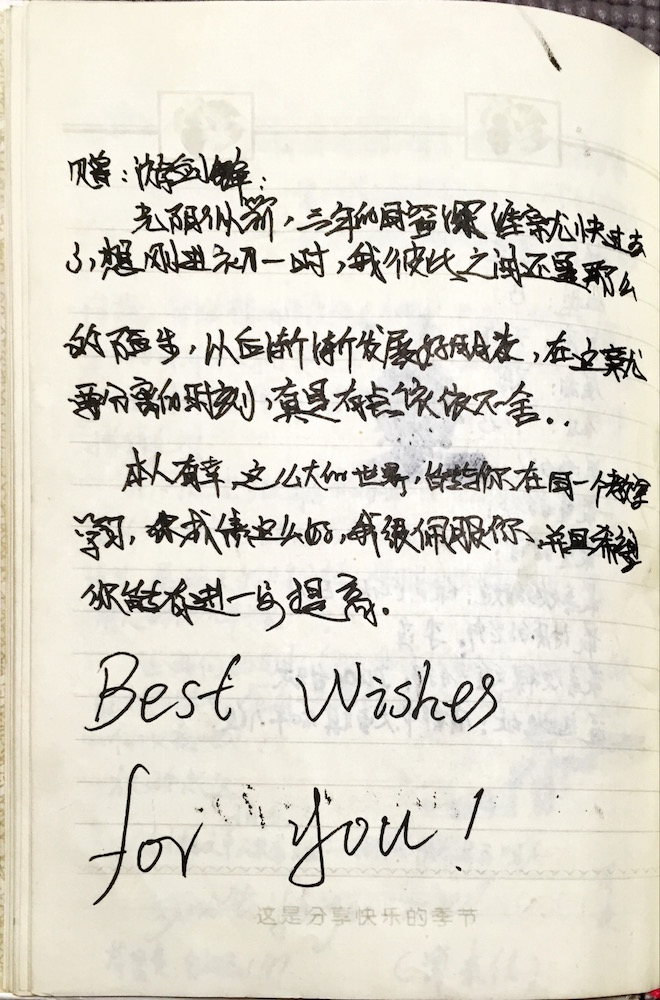 赠：沈剑锋：
光阴似箭，三年的同窗生涯就快过去
了，想刚进初一时，我彼此之间还是那么
的陌生，从后渐渐发展好朋友，在这就
要分离的时刻，真是有点依依不舍..
本人有幸，这么大的世界，能与你在同一个教室
学习，你成绩这么好，我很佩服你，并且希望
你能有进一步提高。
Best Wishes
for you!
这是分享快乐的季节